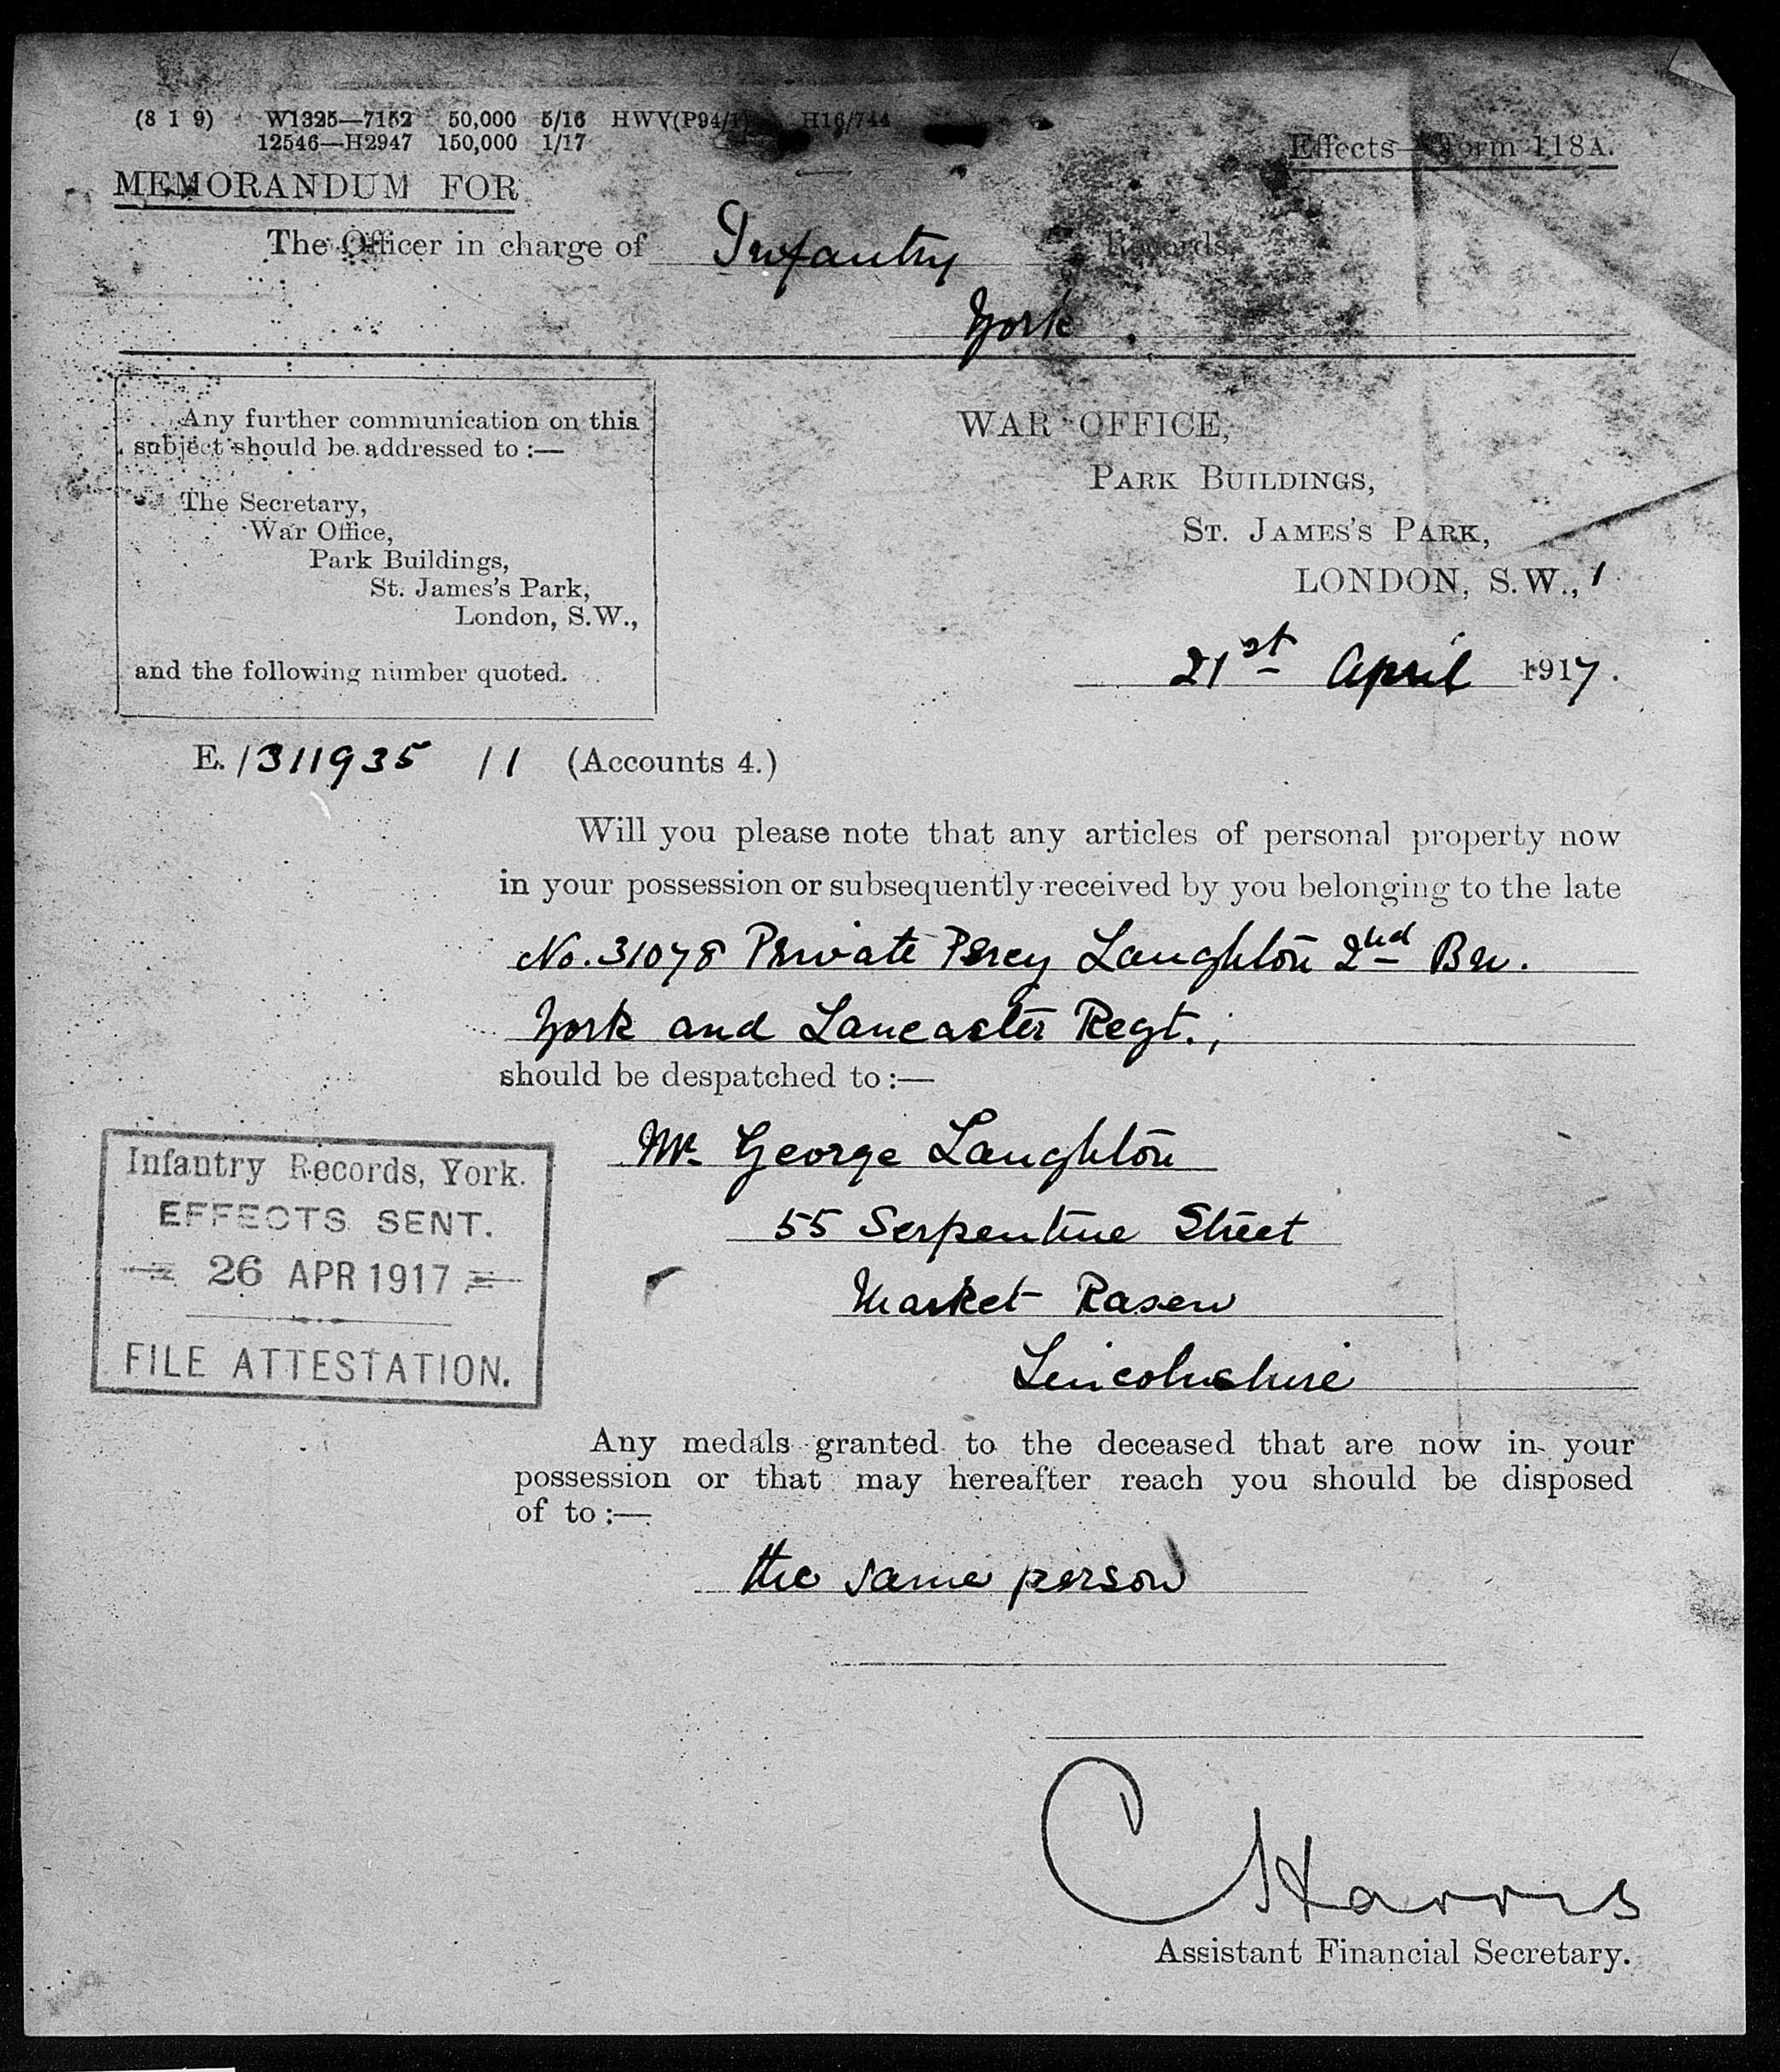 (8 1 9) W1325—7152 50,000 5/16 HWV(P94/1) H16/744
12546—H2947 150,000 1/17
Effects—Form 118A.
MEMORANDUM FOR
The Officer in charge of Infantry Records,
York.
Any further communication on this
subject should be addressed to :—
The Secretary,
War Office,
Park Buildings,
St. James's Park,
London, S.W.,
and the following number quoted.
WAR OFFICE,
PARK BUILDINGS,
ST. JAMES'S PARK,
LONDON, S.W., 1
21st April 1917.
E./311935 /1 (Accounts 4.)
Will you please note that any articles of personal property now
in your possession or subsequently received by you belonging to the late
No. 31078 Private Percy Laughton 2nd Bn.
York and Lancaster Regt.;
should be despatched to :—
Mr. George Laughton
55 Serpentine Street
Market Rasen
Lincolnshire
Infantry Records, York.
EFFECTS SENT.
26 APR 1917
FILE ATTESTATION.
Any medals granted to the deceased that are now in your
possession or that may hereafter reach you should be disposed
of to :—
the same person
C Harris
Assistant Financial Secretary.